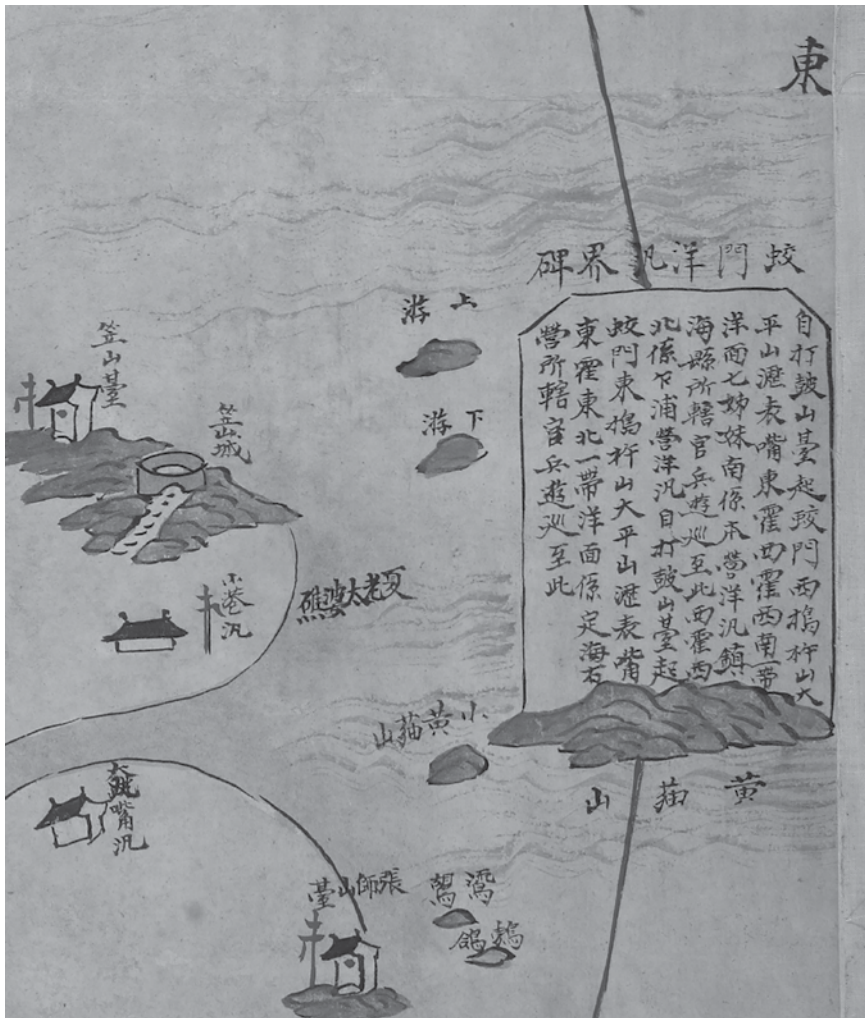 東
蛟門洋汎界碑
自打皷山臺起蛟門西搗杵山大
平山瀝表嘴東霍西霍西南一帶
洋面七姊妹南係本營洋汎鎮
海縣所轄官兵遊巡至此西霍西
北係乍浦營洋汎自打皷山臺起
蛟門東搗杵山大平山瀝表嘴
東霍東北一帶洋面係定海右
營所轄官兵遊巡至此
黃猫山
上游
下游
笠山臺
笠山城
小港汎
夏老太婆礁
小黃猫山
大跳嘴汎
張師山臺
鵓鴿